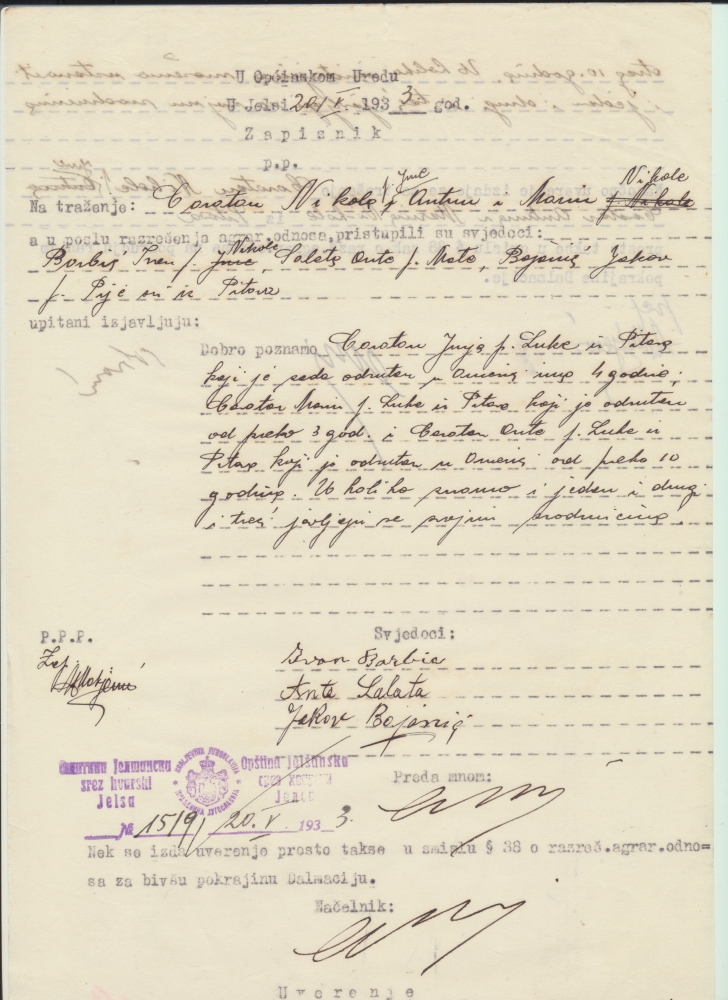 U Općinskom Uredu
U Jelsi 20/V. 1933 god.
Zapisnik
p.p.
Jure Nikole
Na traženje: Caratan Nikole, Antun i Marin f. Nikole
a u poslu razrešenja agrar.odnosa,pristupili su svjedoci:
Nikole
Barbić Ivan f. Jure, Salata Ante f. Mate, Bojanić Jakov
f. svi iz Pitava
upitani izjavljuju:
Dobro poznamo Caratan Jurja p. Luke iz Pitava
koji je sada odsutan u Americi ima 4 godine;
Caratan Marin f. Luke iz Pitava koji je odsutan
od preko 3 god. i Caratan Ante f. Luke iz
Pitava koji je odsutan u Americi od preko 10
godina. U koliko znamo i jedan i drugi
i treći javljaju se svojim srodnicima.
P.P.P. Svjedoci:
Zap. Ivan Barbić
Ante Salata
Jakov Bojanić
Opština jelšanska
srez hvarski
Jelsa
Preda mnom:
№ 1519/ 20.V. 1933.
Nek se izda uverenje prosto takse u smislu § 38 o razreš.agrar.odno=
sa za bivšu pokrajinu Dalmaciju.
Načelnik:
Uverenje